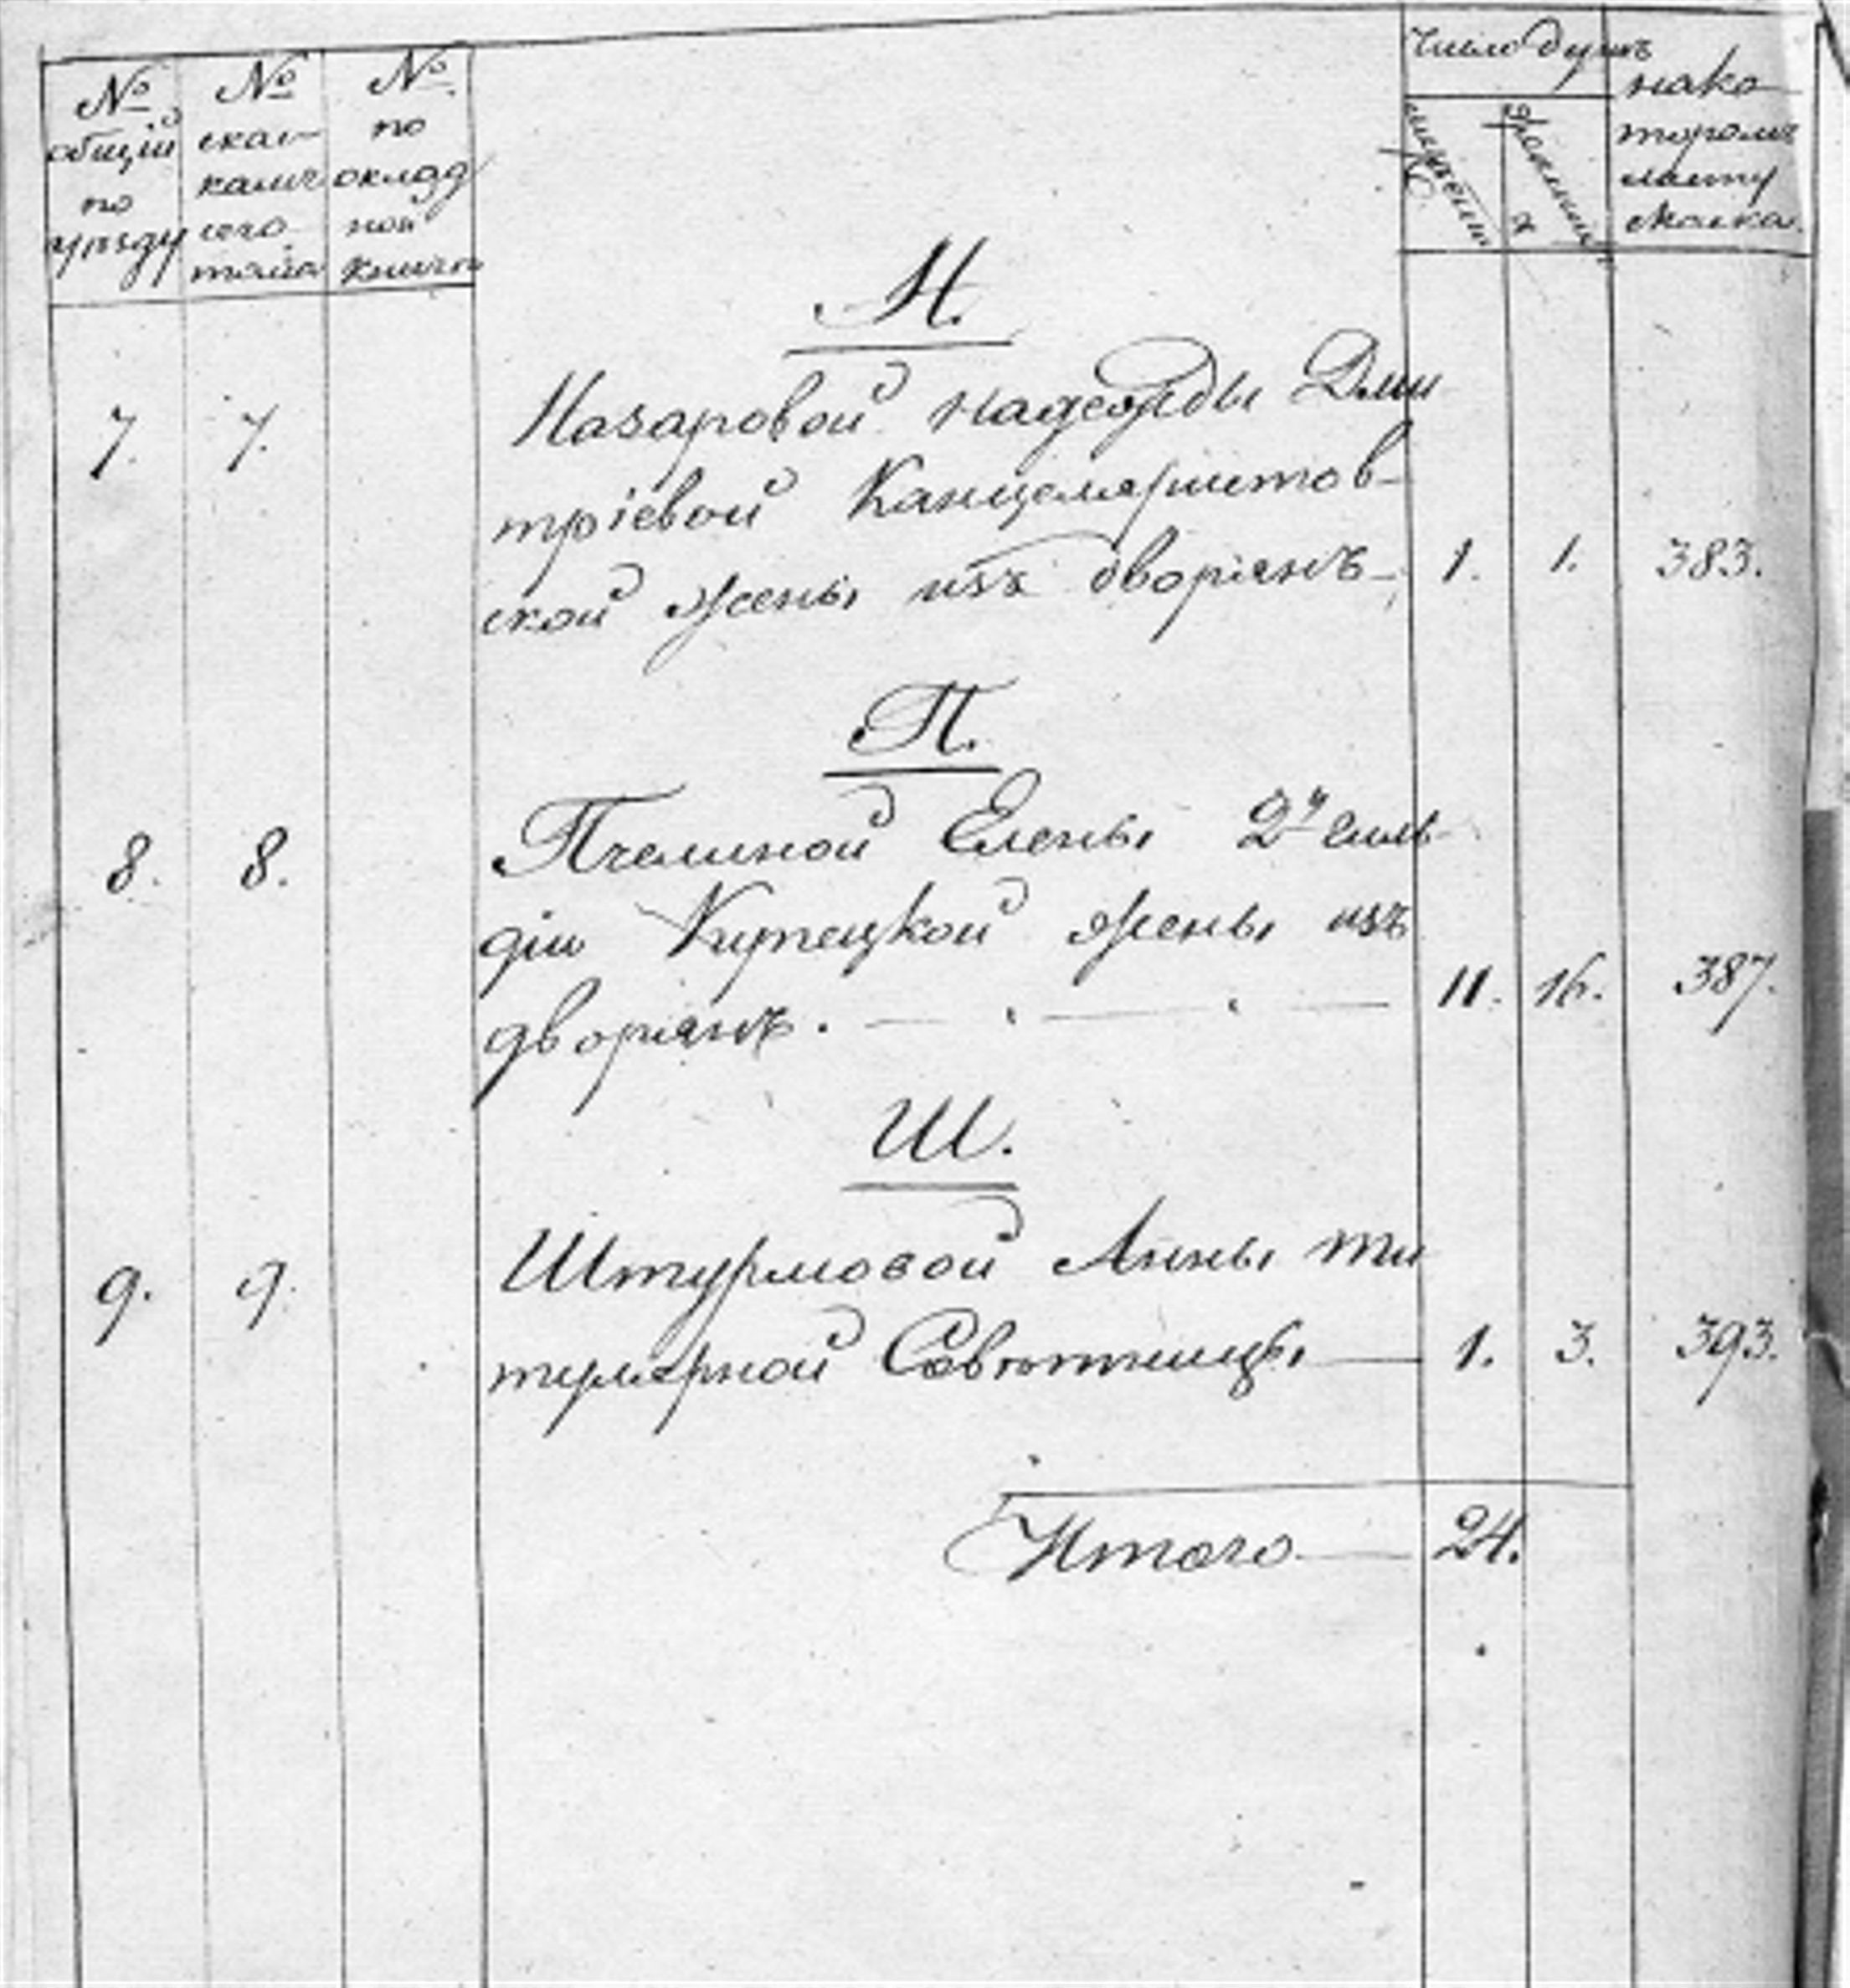 № общій по уѣзду
№ сказ-
камъ сего тома
№ по окладной книгѣ
Число душъ
мужеска
женска
на ко-
торомъ
листу
сказка.
Н.
7. 7. Назаровой надежды Дми
тріевой Канцеляристов-
ской жены изъ дворянъ- 1. 1. 383.
П.
8. 8. Пчелиной Елены 2й гиль-
діи Купецкой жены изъ
дворянъ. — — 11. 16. 387.
Ш.
9. 9. Штурмовой Анны ти
тулярной Совѣтницы — 1. 3. 393.
Итого — 24.